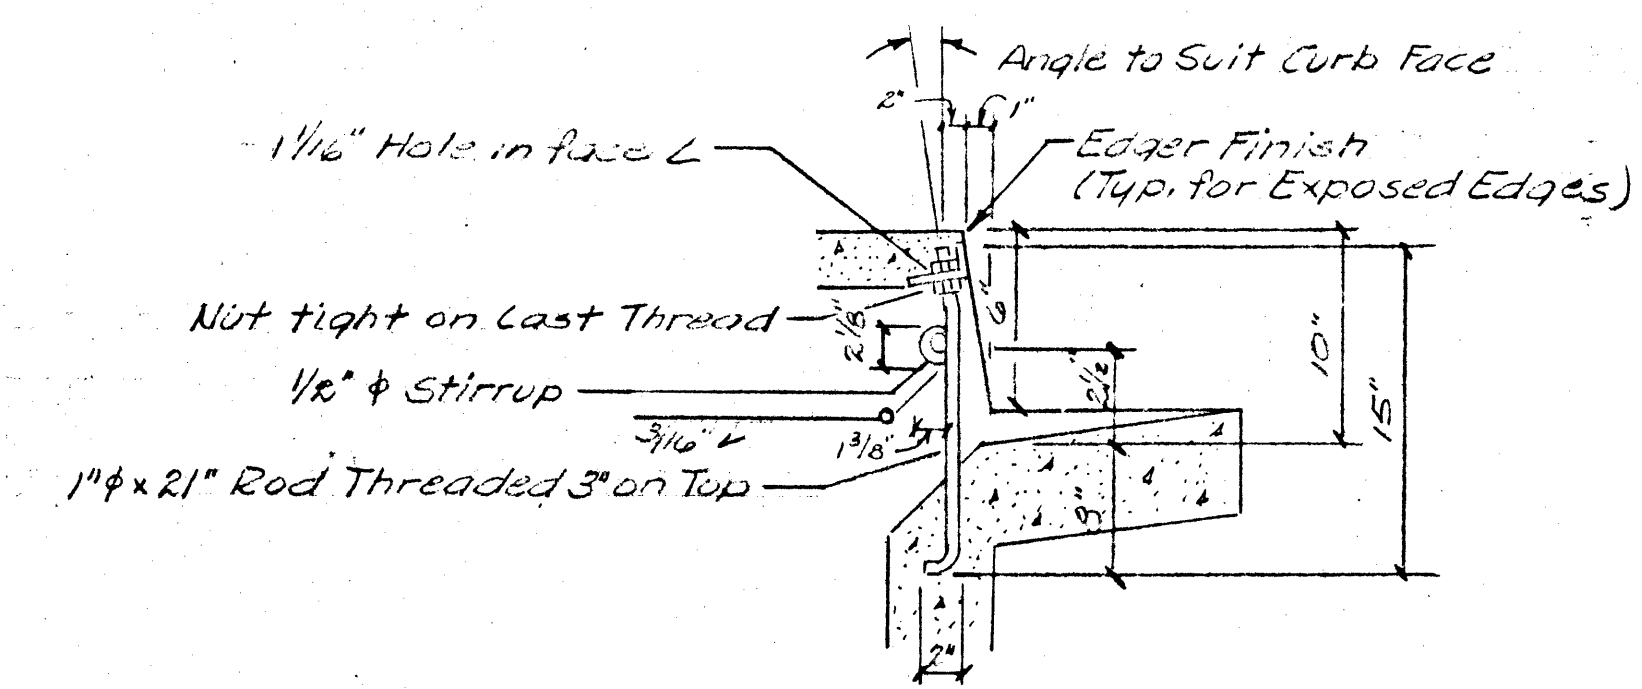 Angle to Suit Curb Face
2" 1"
1 1/16" Hole in face L
Edger Finish
(Typ. for Exposed Edges)
Nut tight on Last Thread
2 1/8"
6"
10"
15"
1/2" φ Stirrup
2 1/2"
3/16"
1 3/8"
1" φ x 21" Rod Threaded 3" on Top
2"